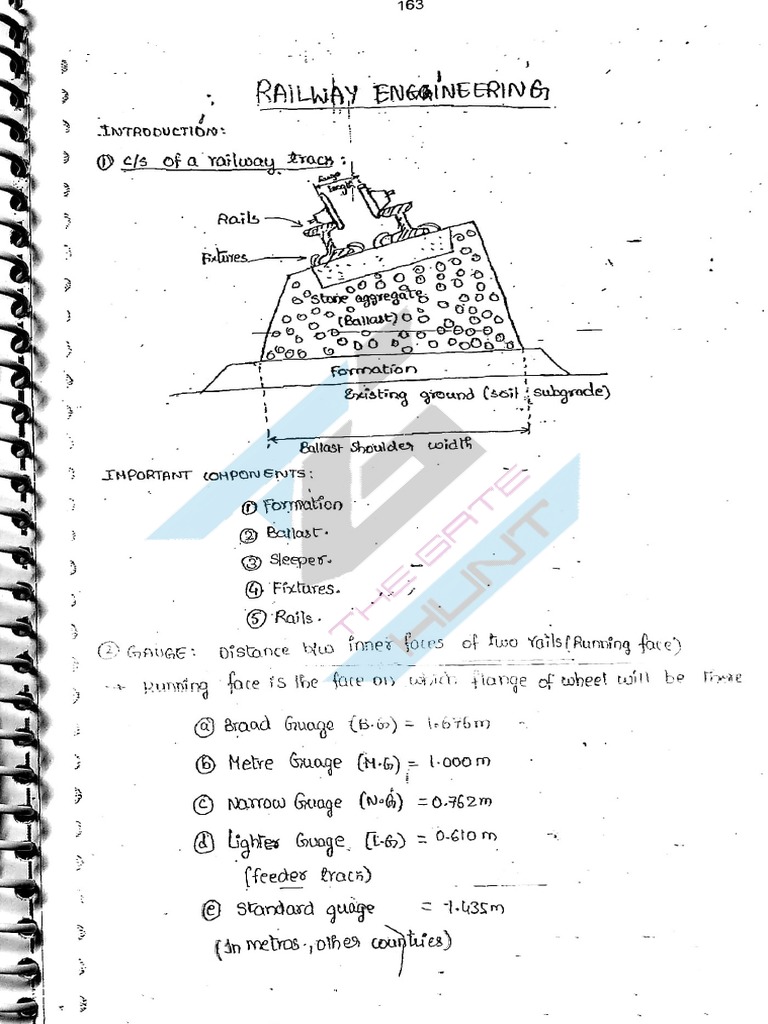 163
RAILWAY ENGGINEERING
INTRODUCTION:
① c/s of a railway track:
Gauge
length
Rails
Fixtures
Stone aggregate
(Ballast)
Formation
Existing ground (soil subgrade)
Ballast shoulder width
IMPORTANT COMPONENTS:
① Formation
② Ballast.
③ Sleeper.
④ Fixtures.
⑤ Rails.
THE GATE
HUNT
② GAUGE: Distance b/w inner faces of two rails (Running face)
→ Running face is the face on which flange of wheel will be there
ⓐ Broad Guage (B.G) = 1.676m
ⓑ Metre Guage (M.G) = 1.000m
ⓒ Narrow Guage (N.G) = 0.762m
ⓓ Lighter Guage (L.G) = 0.610m
(feeder track)
ⓔ Standard guage = 1.435m
(In metros, other countries)